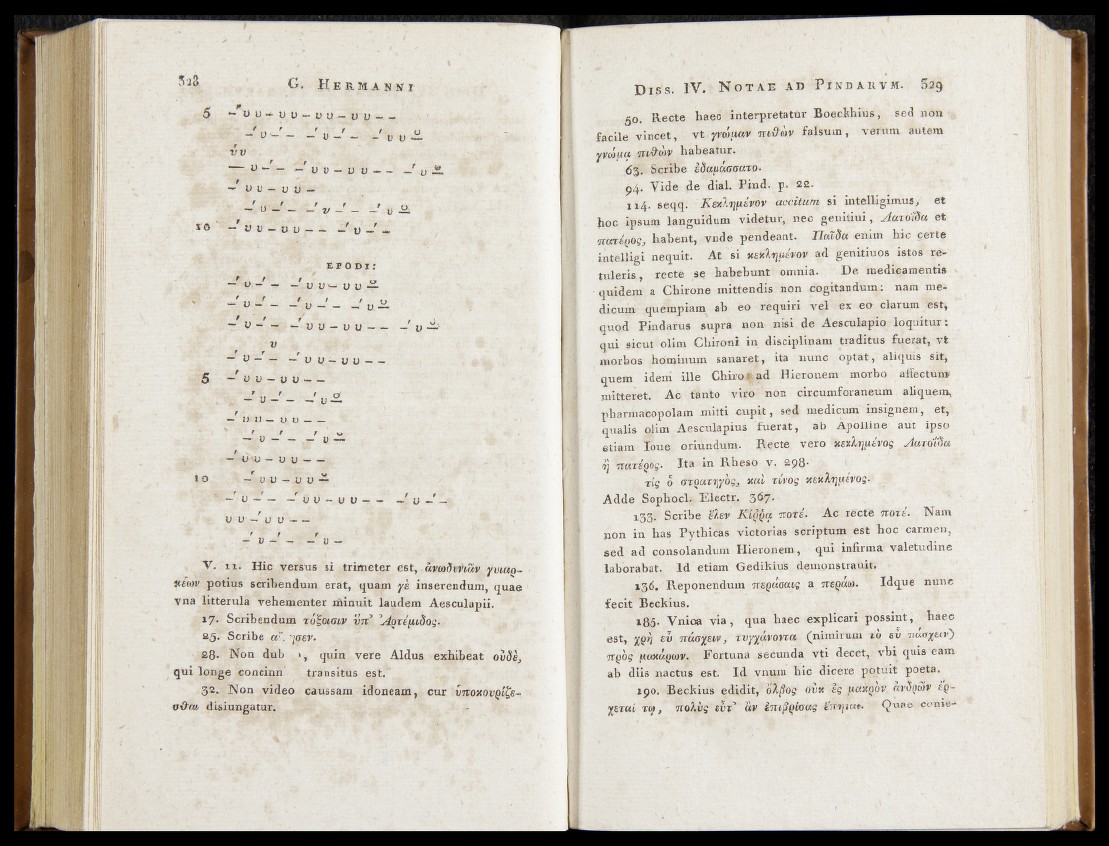 328 G. HERMANNI
5 –́ υ υ – υ υ – υ υ – –
–́ υ –́ – –́ υ –́ – –́ υ υ –
υ υ
– υ –́ – –́ υ υ – υ υ – – –́ υ –
–́ υ υ – υ υ –
–́ υ –́ – –́ υ –́ – –́ υ –
10 –́ υ υ – υ υ – – –́ υ –́ –
EPODI:
–́ υ –́ – –́ υ υ – υ υ –
–́ υ –́ – –́ υ –́ – –́ υ –
–́ υ –́ – –́ υ υ – υ υ – – –́ υ –
υ
–́ υ –́ – –́ υ υ – υ υ – –
5 –́ υ υ – υ υ – –
–́ υ –́ – –́ υ –
–́ υ υ – υ υ – –
–́ υ –́ – –́ υ –
–́ υ υ – υ υ – –
10 –́ υ υ – υ υ –
–́ υ –́ – –́ υ υ – υ υ – – –́ υ –́ –
υ υ –́ υ υ – –
–́ υ –́ – –́ υ –
V. 11. Hic versus si trimeter est, ἀνωδυνίαν γυιαρ-
κέων potius scribendum erat, quam γὲ inserendum, quae
vna litterula vehementer minuit laudem Aesculapii.
17. Scribendum τόξοισιν ὑπ᾽ Ἀρτέμιδος.
25. Scribe
28. Non quin vere Aldus exhibeat οὐδὲ,
qui longe transitus est.
32. Non video caussam idoneam, cur ὑποκουρίζε-
σθαι disiungatur.
DISS. IV. NOTAE AD PINDARVM. 329
50. Recte haec interpretatur Boeckhius, sed non
facile vincet, vt γνώμαν πιθὼν falsum, verum autem
γνώμᾳ πιθὼν habeatur.
63. Scribe ἐδαμάσσατο.
94. Vide de dial. Pind. p. 22.
114. seqq. Κεκλημένον accitum si intelligimus, et
hoc ipsum languidum videtur, nec genitiui, Λατοΐδα et
πατέρος, habent, vnde pendeant. Παῖδα enim hic certe
intelligi nequit. At si κεκλημένον ad genitiuos istos re-
tuleris, recte se habebunt omnia. De medicamentis
quidem a Chirone mittendis non cogitandum: nam me-
dicum quempiam ab eo requiri vel ex eo clarum est,
quod Pindarus supra non nisi de Aesculapio loquitur:
qui sicut olim Chironi in disciplinam traditus fuerat, vt
morbos hominum sanaret, ita nunc optat, aliquis sit,
quem idem ille Chiro ad Hieronem morbo affectum
mitteret. Ac tanto viro non circumforaneum aliquem,
pharmacopolam mitti cupit, sed medicum insignem, et,
qualis olim Aesculapius fuerat, ab Apolline aut ipso
etiam Ioue oriundum. Recte vero κεκλημένος Λατοΐδα
ἢ πατέρος. Ita in Rheso v. 298.
τίς ὁ στρατηγὸς, καὶ τίνος κεκλημένος.
Adde Sophocl. Electr. 367.
133. Scribe ἕλεν Κίῤῥᾳ ποτέ. Ac recte ποτέ. Nam
non in has Pythicas victorias scriptum est hoc carmen,
sed ad consolandum Hieronem, qui infirma valetudine
laborabat. Id etiam Gedikius demonstrauit.
136. Reponendum περάσαις a περάω. Idque nunc
fecit Beckius.
185. Vnica via, qua haec explicari possint, haec
est, χρὴ εὖ πάσχειν, τυγχάνοντα (nimirum τὸ εὖ πάσχειν)
πρὸς μακάρων. Fortuna secunda vti decet, vbi quis eam
ab diis nactus est. Id vnum hic dicere potuit poeta.
190. Beckius edidit, ὄλβος οὐκ ἐς μακρὸν ἀνδρῶν ἔρ-
χεταί τῳ, πολὺς εὖτ᾽ ἂν ἐπιβρίσας ἕπηται. Quae conie-